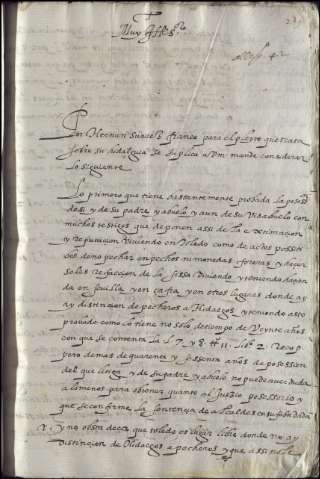 Muy Ille. s.or
Por Hernan Suarez franco para el pleyto que trata
sobre su hidalguia se suplica a Vm. mande considerar
lo siguiente
Lo primero que tiene bastantemente probada la posesi
de si y de su padre y abuelo y aun de su visabuelo con
muchos testigos que deponen assi de la
y reputacion viviendo en Toledo como de actos possiti
bos de no pechar en pechos ni monedas foreras
refaccion de la sissa viviendo y teniendo hazien
da en sevilla y en otros lugares donde ay
ay distincion de pecheros a Hidalgos y teniendo esto
probado como lo tiene no solo de tiempo de veynte años
con que se contenta la l. 7 y 8. tt. 11. lib. 2. Recop.
pero de mas de quarenta y sesenta años de posession
del que litiga y de su padre y abuelo no puede aver duda
a lo menos para obtener quanto al Juizio possessorio y
que se confirme la sentencia de Alcaldes en su fabor dada
y no obsta dezir que toledo es lugar libre donde no ay
distincion de Hidalgos a pecheros y que assi